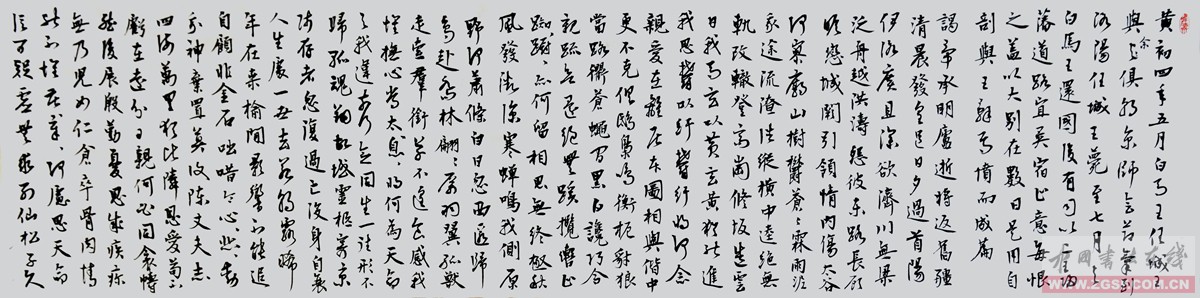 黄初四年五月白马王任城王
與余俱朝京师会节气到
洛陽任城王薨至七月与
白马王還國後有司以二王歸
藩道路宜異宿止意每恨
之盖以大别在數日是用自
剖與王辭焉憤而成篇
謁帝承明廬逝將返舊疆
清晨發皇邑日夕過首陽
伊洛廣且深欲濟川無梁
泛舟越洪濤怨彼東路長顧
瞻戀城闕引領情内傷太谷
何寥廓山樹鬱蒼蒼霖雨泥
我塗流潦浩縱橫中逵絶無
軌改轍登高崗修坂造雲
日我馬玄以黄玄黄猶能進
我思鬱以紆鬱紆將何念
親愛在離居本圖相與偕中
更不克俱鴟梟鳴衡軛豺狼
當路衢蒼蠅間黑白讒巧令
親疏欲還絶無蹊攬轡止
踟躕亦何留相思無終極秋
風發微涼寒蟬鳴我側原
野何蕭條白日忽西匿歸
鳥赴喬林翩翩厲羽翼孤獸
走索群銜草不遑食感我
懷撫心常太息將何為天命
與我違奈何念同生一往形不
歸孤魂翔故城靈柩寄京
師存者忽復過亡没身自衰
人生處一世去若朝露晞
年在桑榆間影響不能追
自顧非金石咄唶令心悲心悲動
我神棄置莫復陳丈夫志
四海萬里猶比鄰恩愛苟不
虧在遠分日親何必同衾幬
然後展殷勤憂思成疾疢
無乃兒女仁倉卒骨肉情
能不懷苦辛何慮思天命
信可疑虛無求列仙松子久
中国书画在线
www.cgssh.com.cn